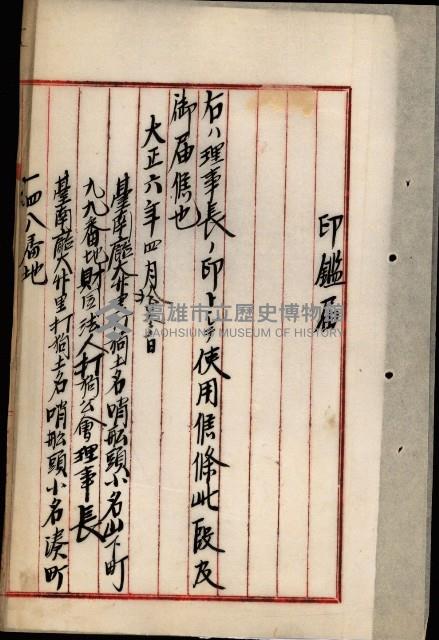 印鑑届
右ハ理事長ノ印トシテ使用候條此段及
御届候也
大正六年四月拾一日
臺南廳大竹里打狗土名哨船頭小名山下町
九九番地財団法人打狗公會理事長
臺南廳大竹里打狗土名哨船頭小名湊町
一四八番地
高雄市立歷史博物館
KAOHSIUNG MUSEUM OF HISTORY